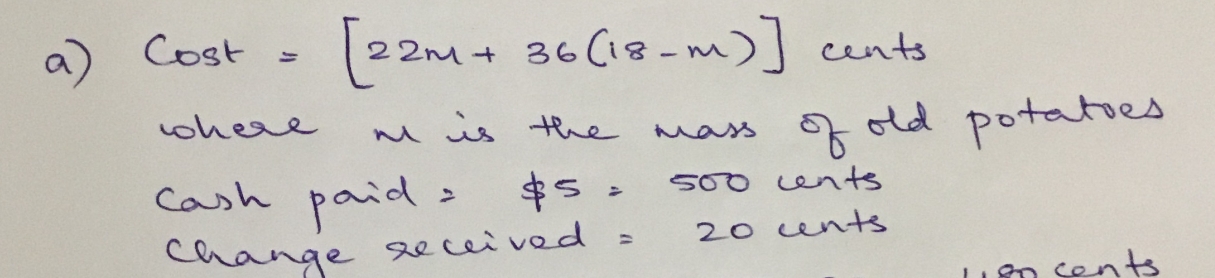 a) Cost = [22m + 36(18-m)] cents
where m is the mass of old potatoes
Cash paid = $5 = 500 cents
Change received = 20 cents
cents